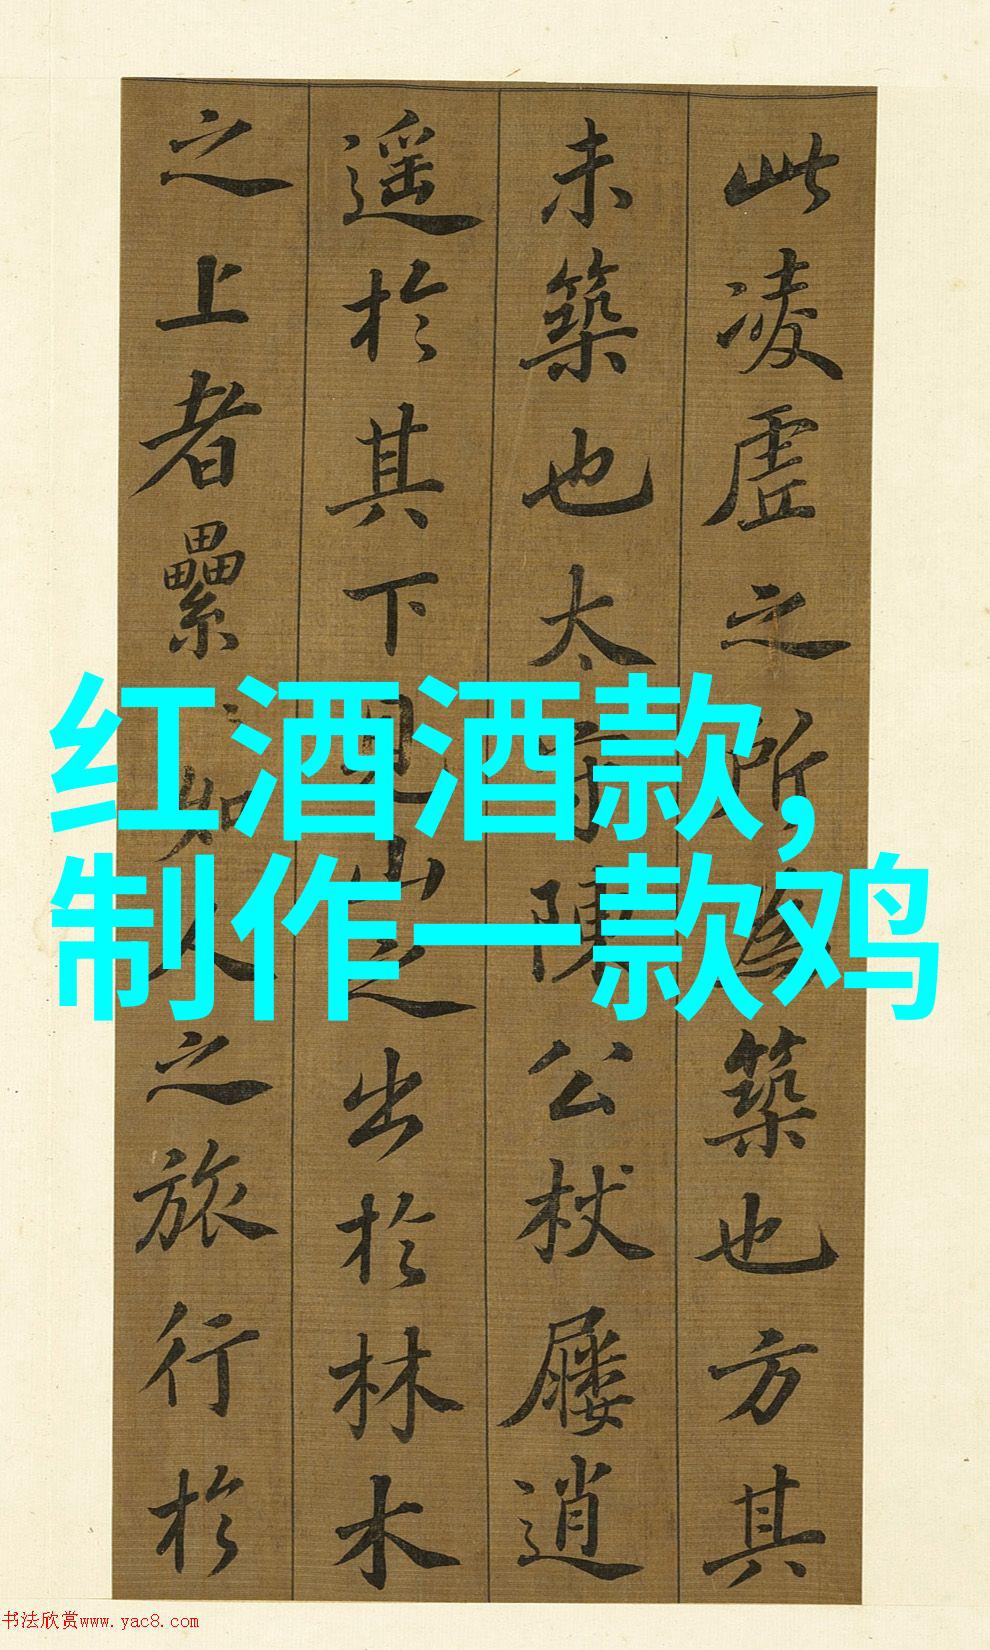 此凌虛之所為築也方其
未築也太守陳公杖屨逍
遥於其下見山之出於林木
之上者纍〻如人之旅行於
红酒酒款,
制作一款鸡
书法欣赏www.yac8.com